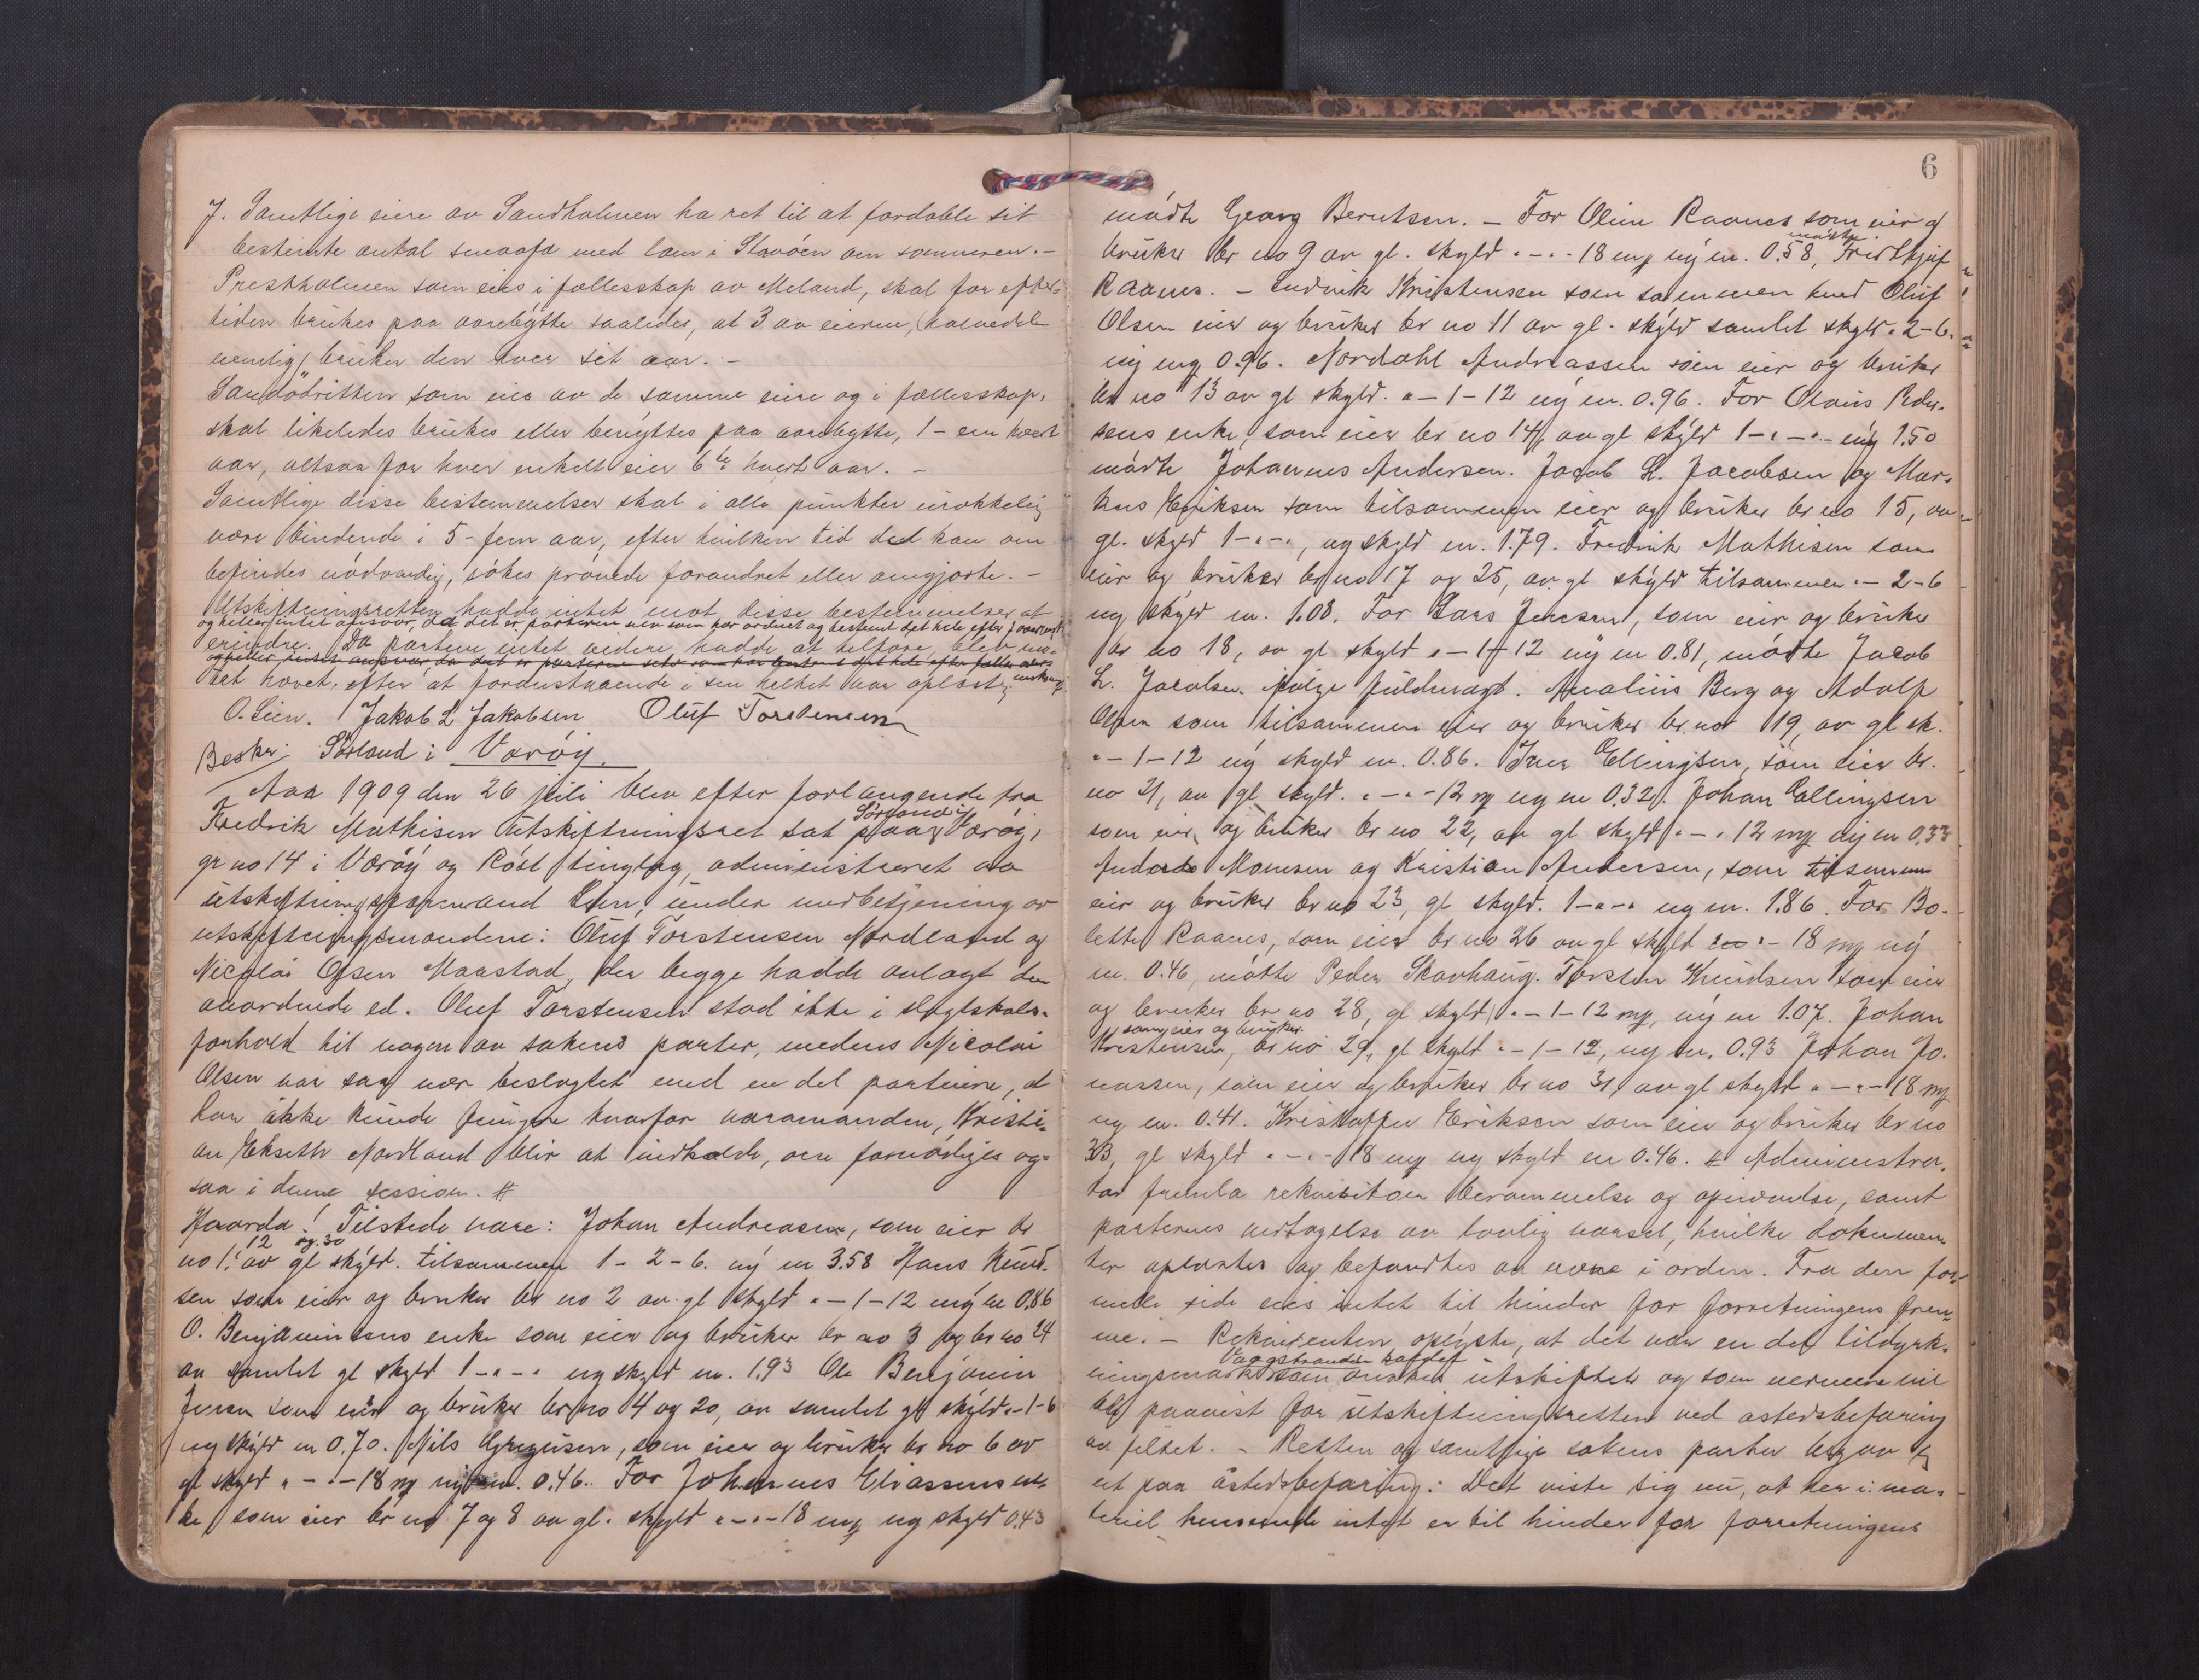 7. Samtlige eiere av Sandholmen ha ret til at fordoble sit
bestemte antal smaafæ med lam i Stavöen om sommeren. –
Prestholmen som eies i fællesskap av Meland, skal for efter-
tiden brukes paa aarebytte saaledes, at 3 av eierne, (halvedel
nemlig) bruker den hver sit aar. –
Sandödritten som eies av de samme eiere og i fællesskap,
skal likeledes brukes eller benyttes paa aarebytte, 1 – en hvert
aar, altsaa for hver enkelt eier 6te hvert aar. –
Samtlige disse bestemmelser skal i alle punkter urokkelig
være bindende i 5 – fem aar, efter hvilken tid det kan om
befindes nödvendig, sökes prövede forandret eller omgjorte. –
Utskiftningsretten hadde intet mot disse bestemmelser at
og heller intet ansvar, da det er parterne selv som har ordnet og bestemt det hele efter
erindre. Da parterne intet videre hadde at tilföre, blev mö-
og heller intet ansvar da det er parterne selv som har det hele efter fælles
tet hævet, efter at foranstaaende i sin helhet var oplæst.
O. Lien. Jakob L Jakobsen Oluf Torstensen
Besk. Sörland i Værøy.
Aar 1909 den 26 juli blev efter forlangende fra
Sörland i
Fredrik Mathisen utskiftningsret sat paa Værøy,
gr no 14 i Værøy og Röst tinglag, administreret av
utskiftningsformand Lien, under medbetjening av
utskiftningsmændene: Oluf Torstensen Nordland og
Nicolai Olsen Maastad, der begge hadde avlagt den
anordnede ed. Oluf Torstensen stod ikke i slegtskabs-
forhold til nogen av sakens parter, medens Nicolai
Olsen var saa nær beslegtet med en del parterne, at
han ikke kunde fungere hvorfor varamanden, Kristi-
an Ekseth Nordland blir at indkalde, om fornödiges og-
saa i denne session. #
Haarda! Tilstede vare: Johan Andreasen, som eier br
12 og 30
no 1. av gl skyld. tilsammen 1 – 2 – 6. ny m 3.58 Hans Knud-
sen som eier og bruker br no 2 av gl skyld " – 1 – 12 ny m 0,86
O. Benjaminsens enke som eier og bruker br no 3 og br no 24
av samlet gl skyld 1 – " – " ny skyld m. 1.93 Ole Benjamin
Jensen som eier og bruker br no 4 og 20, av samlet gl skyld " – 1 – 6
ny skyld m 0.70. Nils Gregusen, som eier og bruker br no 6 av
gl skyld " – " – 18 ny m. 0.46. For Johannes Eliassens en-
ke som eier br no 7 og 8 av gl. skyld " – " – 18 ny skyld 0.43
6
mödte Georg Berntsen. – For Oline Raanes som eier og
mödte
bruker br no 9 av gl. skyld " – " – 18 ny m. 0.58, Fridthjof
Raanes. – Ludvik Kristensen som sammen med Oluf
Olsen eier og bruker br no 11 av gl. skyld samlet skyld " 2 – 6.
ny 0.96. Nordahl Andreassen som eier og bruker
br no 13 av gl skyld. " – 1 – 12 ny m. 0.96. For Olaus Peder-
sens enke, som eier br no 14, av gl skyld 1 – " – " – ny 1.50
mödte Johannes Andersen. Jacob L. Jacobsen og Mar-
kus Eriksen som tilsammen eier og bruker br no 15, av
gl. skyld 1 – " – ", ny skyld m. 1.79. Fredrik Mathisen som
eier og bruker br no 17 og 25, av gl skyld tilsammen " – 2 – 6
ny skyld m. 1.08. For Lars Jensen, som eier og bruker
br no 18, av gl skyld " – 1 – 12 ny m 0.81, mödte Jacob
L. Jacobsen ifölge fuldmagt. Amalius Berg og Adolf
Olsen som tilsammen eier og bruker br no 19, av gl sk.
" – 1 – 12 ny skyld m. 0.86. Iver Ellingsen, som eier br.
no 21, av gl skyld. " – " – 12 ny m 0.32. Johan Ellingsen
som eier og bruker br no 22, av gl skyld " – " 12 ny m 0.33
Anders Monsen og Kristian Andersen, som tilsammen
eier og bruker br no 23, gl skyld. 1 – " – " ny m. 1.86. For Bo-
lette Raanes, som eier br no 26 av gl skyld " – 18 ny
m. 0.46, mötte Peder Skarhaug. Torsten Knudsen som eier
og bruker br no 28, gl skyld " – 1 – 12, ny m 1.07. Johan
som eier og bruker
Kristensen, br no 29, gl skyld " – 1 – 12, ny m. 0.93 Johan Jo-
nassen, som eier og bruker br no 31, av gl skyld " – " – 18
ny m. 0.41. Kristoffer Eriksen som eier og bruker br no
33, gl skyld " – " – 18 ny skyld m 0.46. # Administra-
tor fremla rekvisition berammelse og opnævnelse, samt
parternes vedtagelse av lovlig varsel, hvilke dokumen
ter oplæstes og befandtes at være i orden. Fra den for-
melle side sees intet til hinder for forretningens frem-
me. – Rekvirenten oplyste, at det var en del tildyrk-
Vaagstranden kaldet
ningsmark som ønskes utskiftet og som nærmere vil
bli paavist for utskiftningsretten ved astedsbefaring
av feltet. – Retten og samtlige sakens parter begav sig
ut paa åstedsbefaring: Det viste sig nu, at her i ma-
teriel henseende intet er til hinder for forretningens